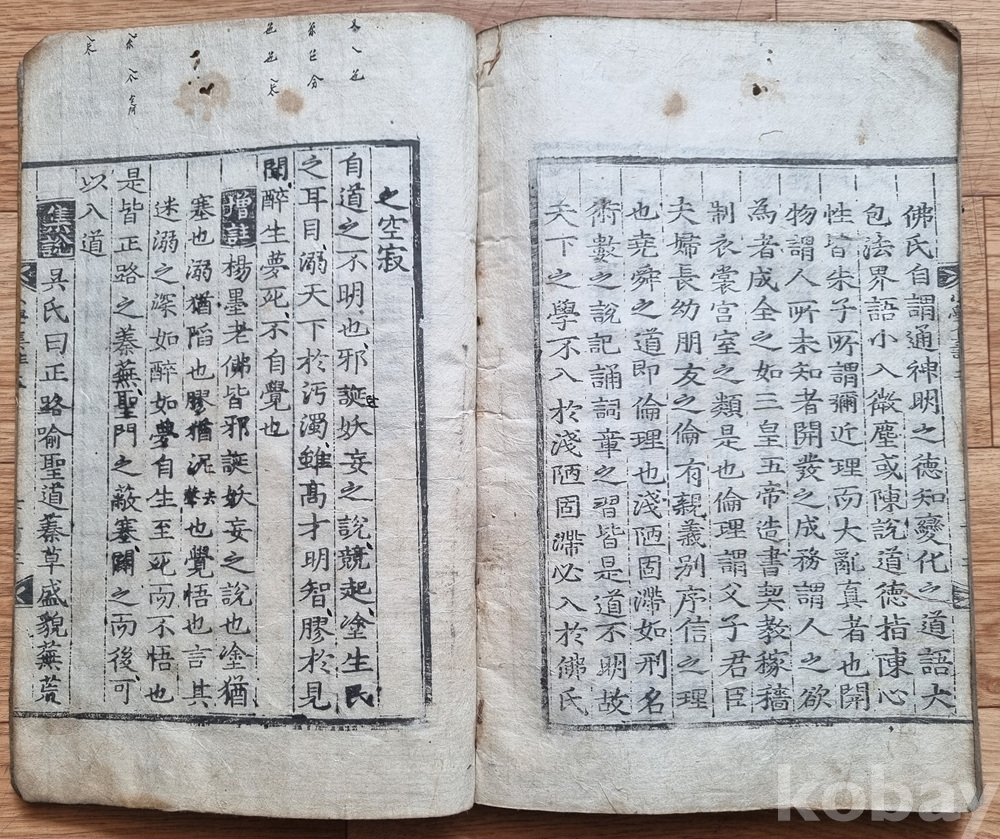 佛氏自謂通神明之德知變化之道語大
包法界語小入微塵或陳說道德指陳心
性皆朱子所謂彌近理而大亂真者也開
物謂人所未知者開發之成務謂人之欲
為者成全之如三皇五帝造書契教稼穡
制衣裳宮室之類是也倫理謂父子君臣
夫婦長幼朋友之倫有親義别序信之理
也堯舜之道即倫理也淺陋固滯如刑名
術數之說記誦詞章之習皆是道不明故
天下之學不入於淺陋固滯必入於佛氏
之空寂
自道之不明也邪誕妖妄之說競起塗生民
之耳目溺天下於汚濁雖高才明智膠於見
聞醉生夢死不自覺也
增註楊墨老佛皆邪誕妖妄之說也塗猶
塞也溺猶陷也膠猶泥去聲也覺悟也言其
迷溺之深如醉如夢自生至死而不悟也
是皆正路之蓁蕪聖門之蔽塞闢之而後可
以入道
集說吳氏曰正路喻聖道蓁草盛貌蕪荒
kobay